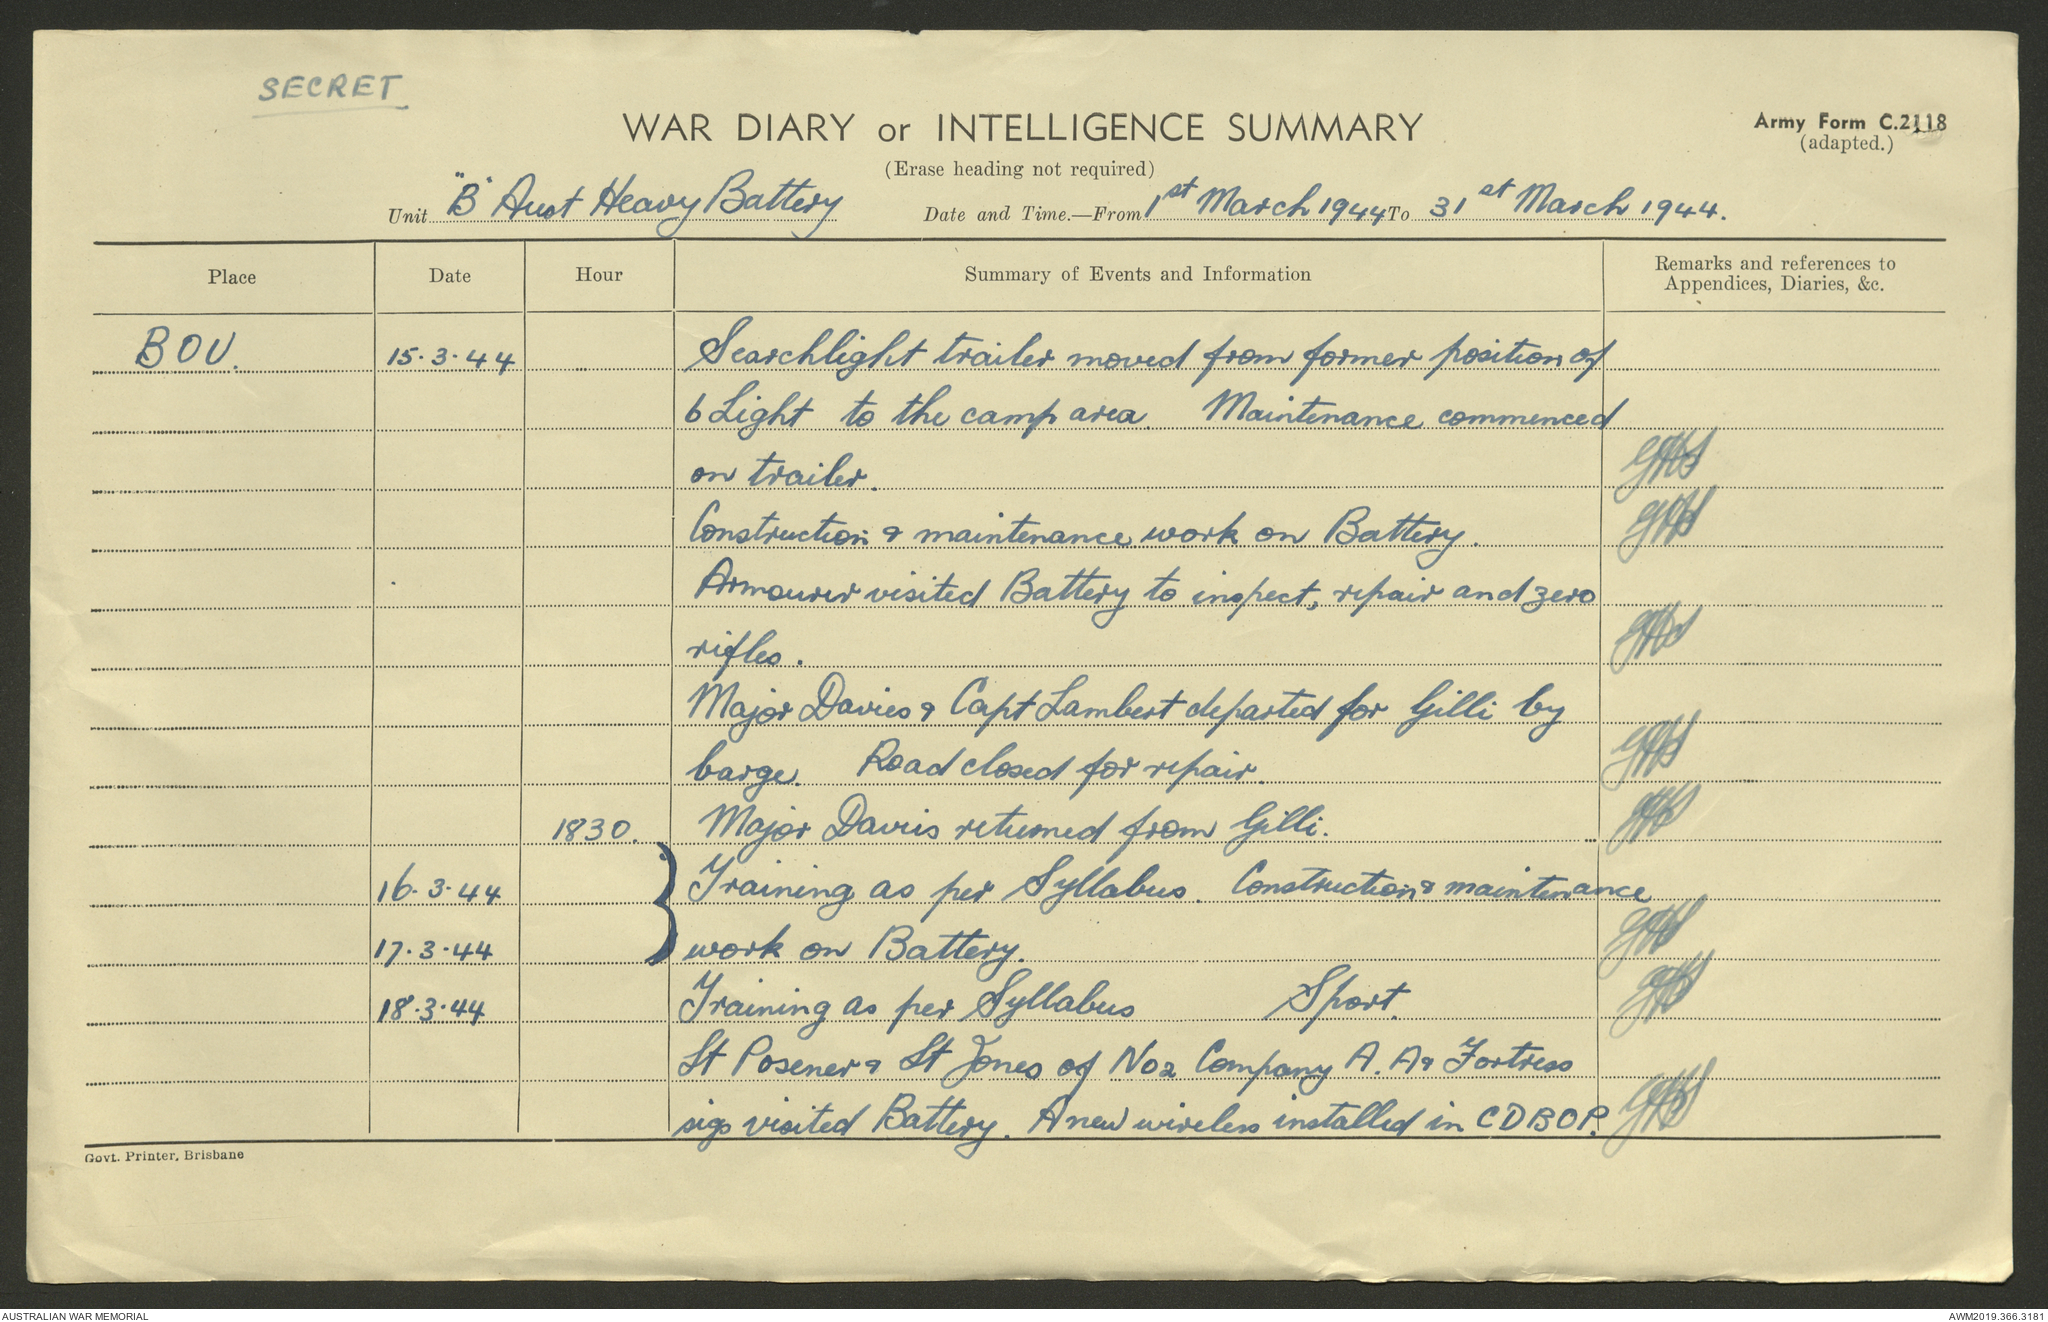 SECRET
WAR DIARY or INTELLIGENCE SUMMARY
Army Form C.2118
(adapted.)
(Erase heading not required)
Unit "B" Aust Heavy Battery Date and Time.—From 1st March 1944 To 31st March 1944.
Place Date Hour Summary of Events and Information Remarks and references to
Appendices, Diaries, &c.
BOV. 15.3.44 Searchlight trailer moved from former position of
6 Light to the camp area. Maintenance commenced
on trailer.
Construction & maintenance work on Battery.
Armourer visited Battery to inspect, repair and zero
rifles.
Major Davies & Capt Lambert departed for Gilli by
barge. Road closed for repair.
1830. Major Davies returned from Gilli.
16.3.44 } Training as per Syllabus. Construction & maintenance
17.3.44 work on Battery.
18.3.44 Training as per Syllabus Sport.
Lt Posener & Lt Jones of No 2 Company A. A & Fortress
sigs visited Battery. A new wireless installed in CDBOP.
Govt. Printer, Brisbane
AUSTRALIAN WAR MEMORIAL AWM2019.366.3181